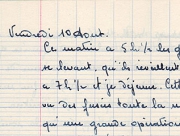 Vendredi 10 Aout.
Ce matin à 5 h ½ les g
se levant, qu'ils réveillent
à 7 h ½ et je déjeune. Cett
vu des fusées toute la n
qui une grande opération